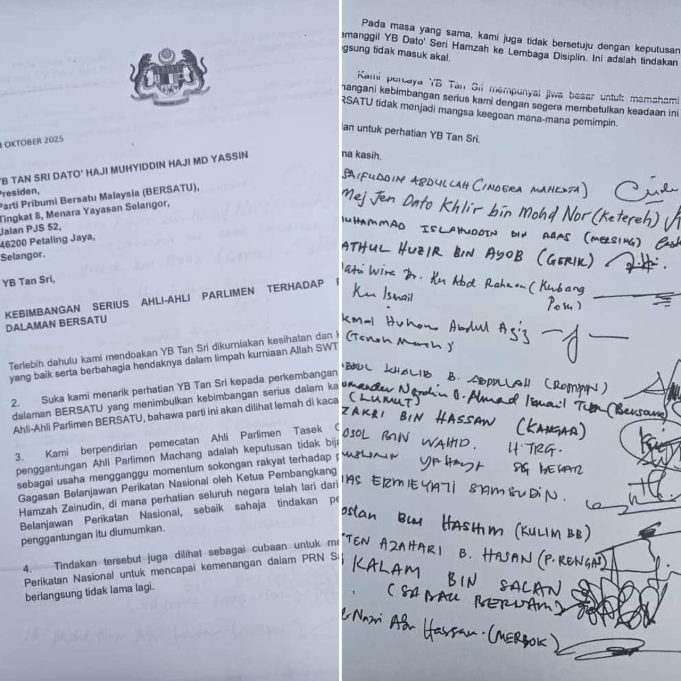 OKTOBER 2025
YB TAN SRI DATO' HAJI MUHYIDDIN HAJI MD YASSIN
Presiden,
Parti Pribumi Bersatu Malaysia (BERSATU),
Tingkat 8, Menara Yayasan Selangor,
Jalan PJS 52,
46200 Petaling Jaya,
Selangor.
YB Tan Sri,
KEBIMBANGAN SERIUS AHLI-AHLI PARLIMEN TERHADAP
DALAMAN BERSATU
Terlebih dahulu kami mendoakan YB Tan Sri dikurniakan kesihatan dan
yang baik serta berbahagia hendaknya dalam limpah kurniaan Allah SWT
2. Suka kami menarik perhatian YB Tan Sri kepada perkembangan
dalaman BERSATU yang menimbulkan kebimbangan serius dalam ka
Ahli-Ahli Parlimen BERSATU, bahawa parti ini akan dilihat lemah di kaca
3. Kami berpendirian pemecatan Ahli Parlimen Tasek
penggantungan Ahli Parlimen Machang adalah keputusan tidak bija
sebagai usaha mengganggu momentum sokongan rakyat terhadap
Gagasan Belanjawan Perikatan Nasional oleh Ketua Pembangkang
Hamzah Zainudin, di mana perhatian seluruh negara telah lari dari
Belanjawan Perikatan Nasional, sebaik sahaja tindakan pe
penggantungan itu diumumkan.
4. Tindakan tersebut juga dilihat sebagai cubaan untuk me
Perikatan Nasional untuk mencapai kemenangan dalam PRN S
berlangsung tidak lama lagi.
Pada masa yang sama, kami juga tidak bersetuju dengan keputusan
emanggil YB Dato' Seri Hamzah ke Lembaga Disiplin. Ini adalah tindakan
gsung tidak masuk akal.
Kami percaya YB Tan Sri mempunyai jiwa besar untuk memahami
nangani kebimbangan serius kami dengan segera membetulkan keadaan ini
RSATU tidak menjadi mangsa keegoan mana-mana pemimpin.
ian untuk perhatian YB Tan Sri.
ma kasih.
SAIFUDDIN ABDULLAH (INDERA MAHKOTA)
Mej Jen Dato Khlir bin Mohd Nor (Ketereh)
MUHAMMAD ISLAHUDDIN BIN ABAS (MERSING)
ATHUL HUZIR BIN AYOB (GERIK)
Dato Wira Dr. Ku Abd Rahman (Kubang
Ku Ismail Pasu)
Abdul Aziz
(Tanah Merah)
ABDUL KHALIB B. ABDULLAH (ROMPIN)
ommander Nordin B. Ahmad Ismail TUDM
(LUMUT)
ZAKRI BIN HASSAN (KANGAR)
ROSOL BIN WAHID. H.TRG.
YAHAYA SG BESAR
MAS ERMIEYATI SAMSUDIN.
Roslan Bin HASHIM (KULIM BB)
AZAHARI B. HASAN (P. RENGAS)
KALAM BIN SALAN
(SABAK BERNAM)
Nazri Abu Hassan. (MERBOK)